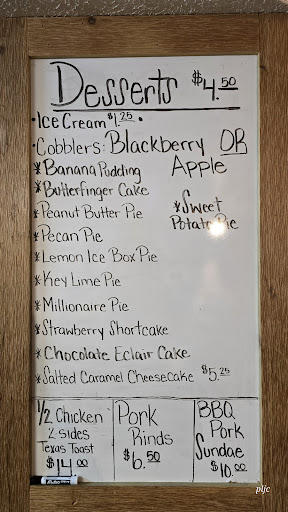 Desserts $4.50
• Ice Cream $1.25 •
• Cobblers: Blackberry OR
Apple
* Banana Pudding
* Butterfinger Cake
* Sweet
Potato Pie
* Peanut Butter Pie
* Pecan Pie
* Lemon Ice Box Pie
* Key Lime Pie
* Millionaire Pie
* Strawberry Shortcake
* Chocolate Eclair Cake
* Salted Caramel Cheesecake $5.25
1/2 Chicken
2 sides
Texas Toast
$14.00
Pork
Rinds
$6.50
BBQ
Pork
Sundae
$10.00
pljc